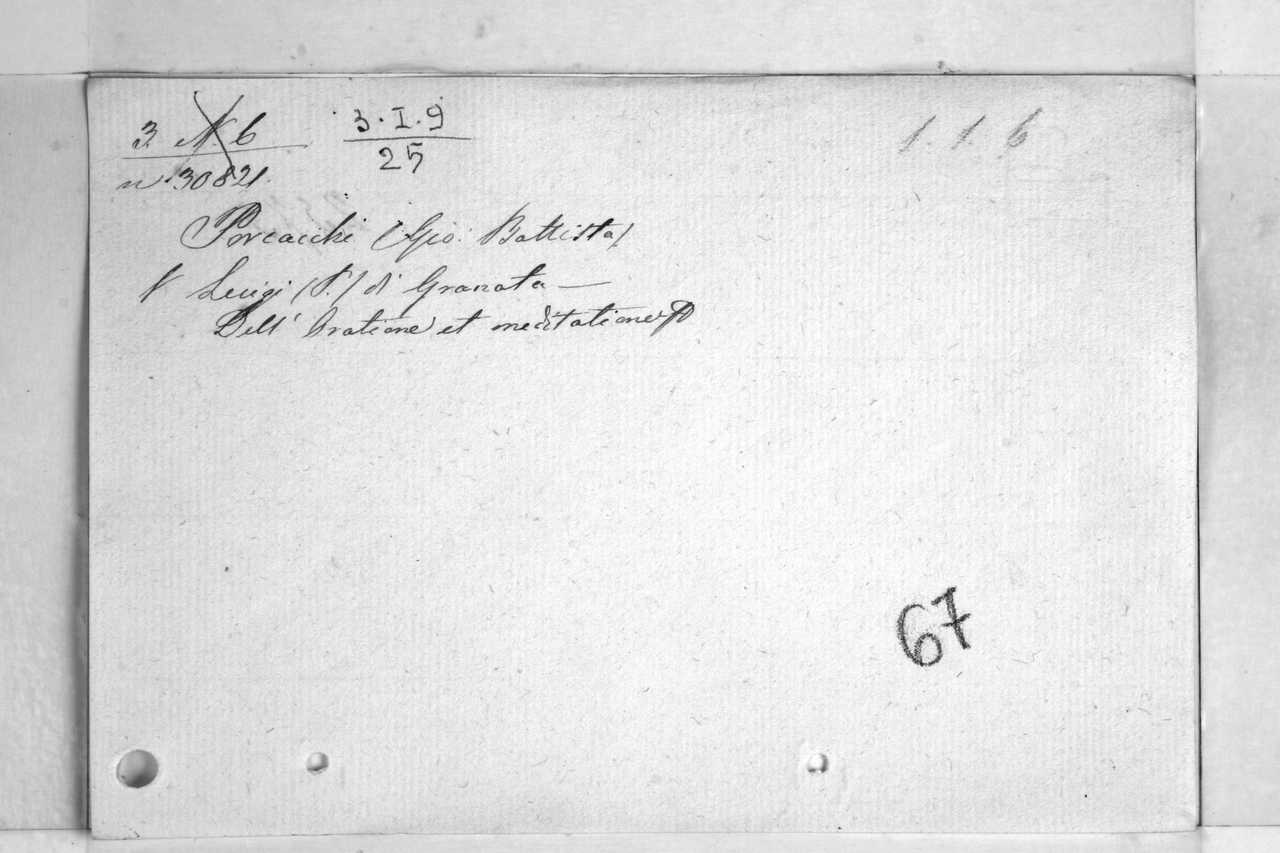 3. N 6
n. 30821.
3.I.9
25
1. 1. 6
Porcacchi (Gio: Battista)
V Luigi (P.) di Granata —
Dell' Oratione et meditatione
67